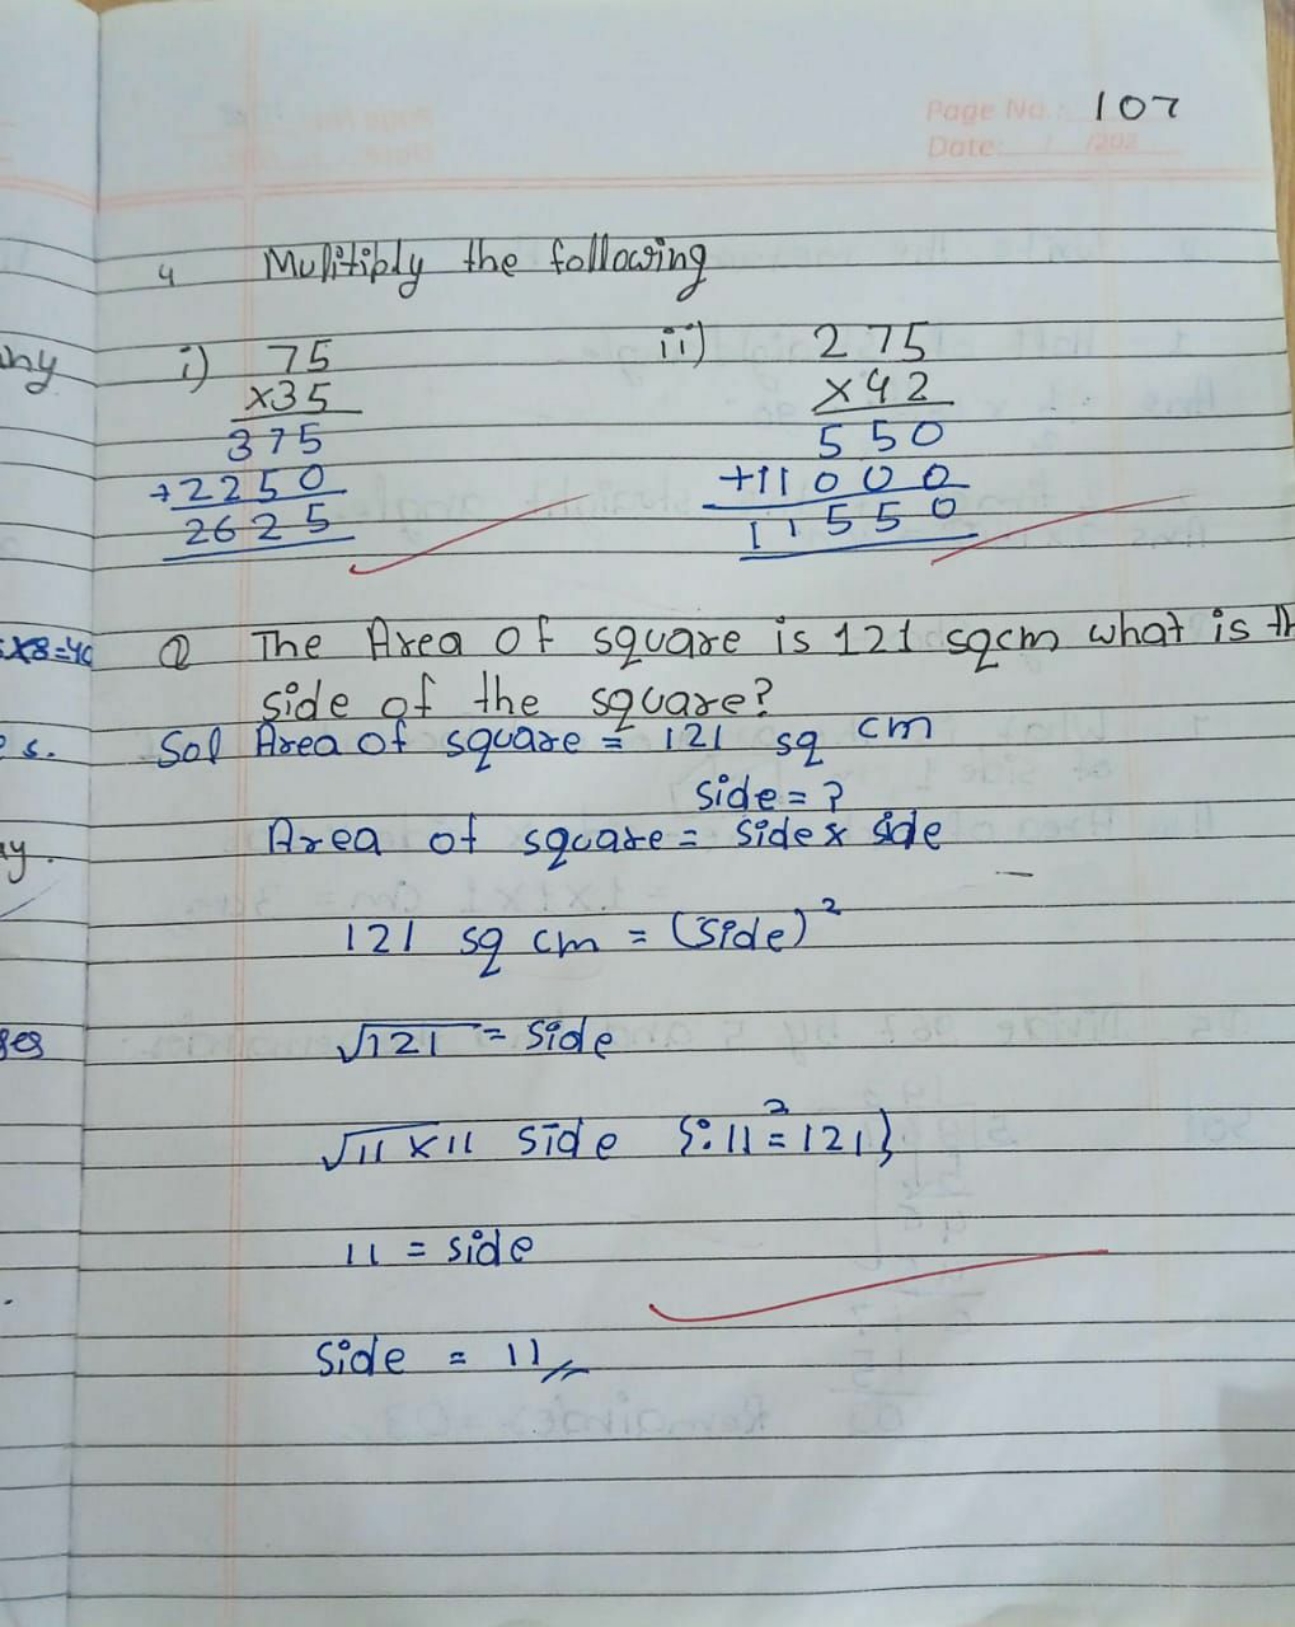 Page No. 107
Date: / /202
4 Mulitiply the following
i) 75 ii) 275
×35 ×42
375 550
+2250 +11000
2625 11550
Q The Area of square is 121 sqcm what is th
side of the square?
Sol Area of square = 121 sq cm
side = ?
Area of square = side x side
121 sq cm = (side)²
√121 = side
√11 x 11 side {∵ 11² = 121}
11 = side
side = 11
x8=40
s.